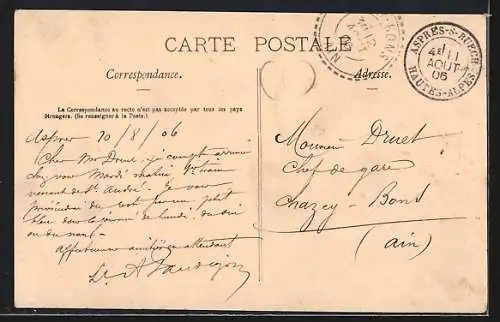 CARTE POSTALE
Correspondance.
Adresse.
La Correspondance au recto n'est pas acceptée par tous les pays
étrangers. (Se renseigner à la Poste.)
ASPRES-S-BUECH
4E 11
AOUT
06
HAUTES-ALPES
Aspres 10/8/06
Cher Mr Druet, je compte arriver
chez vous Mardi matin, train
venant de St André. Je vous
petit
bleu dans la journée de lundi, du oui
ou du non.
Affectueuse amitié en attendant
Monsieur Druet
Chef de gare
Chazey-Bons
(Ain)